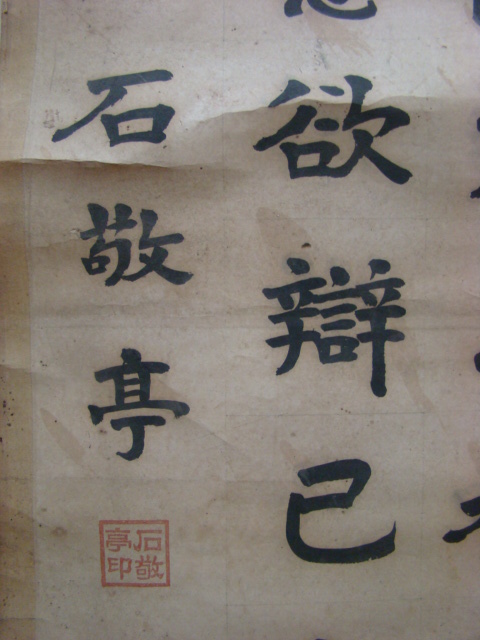 欲辯已
石敬亭
石敬
亭印